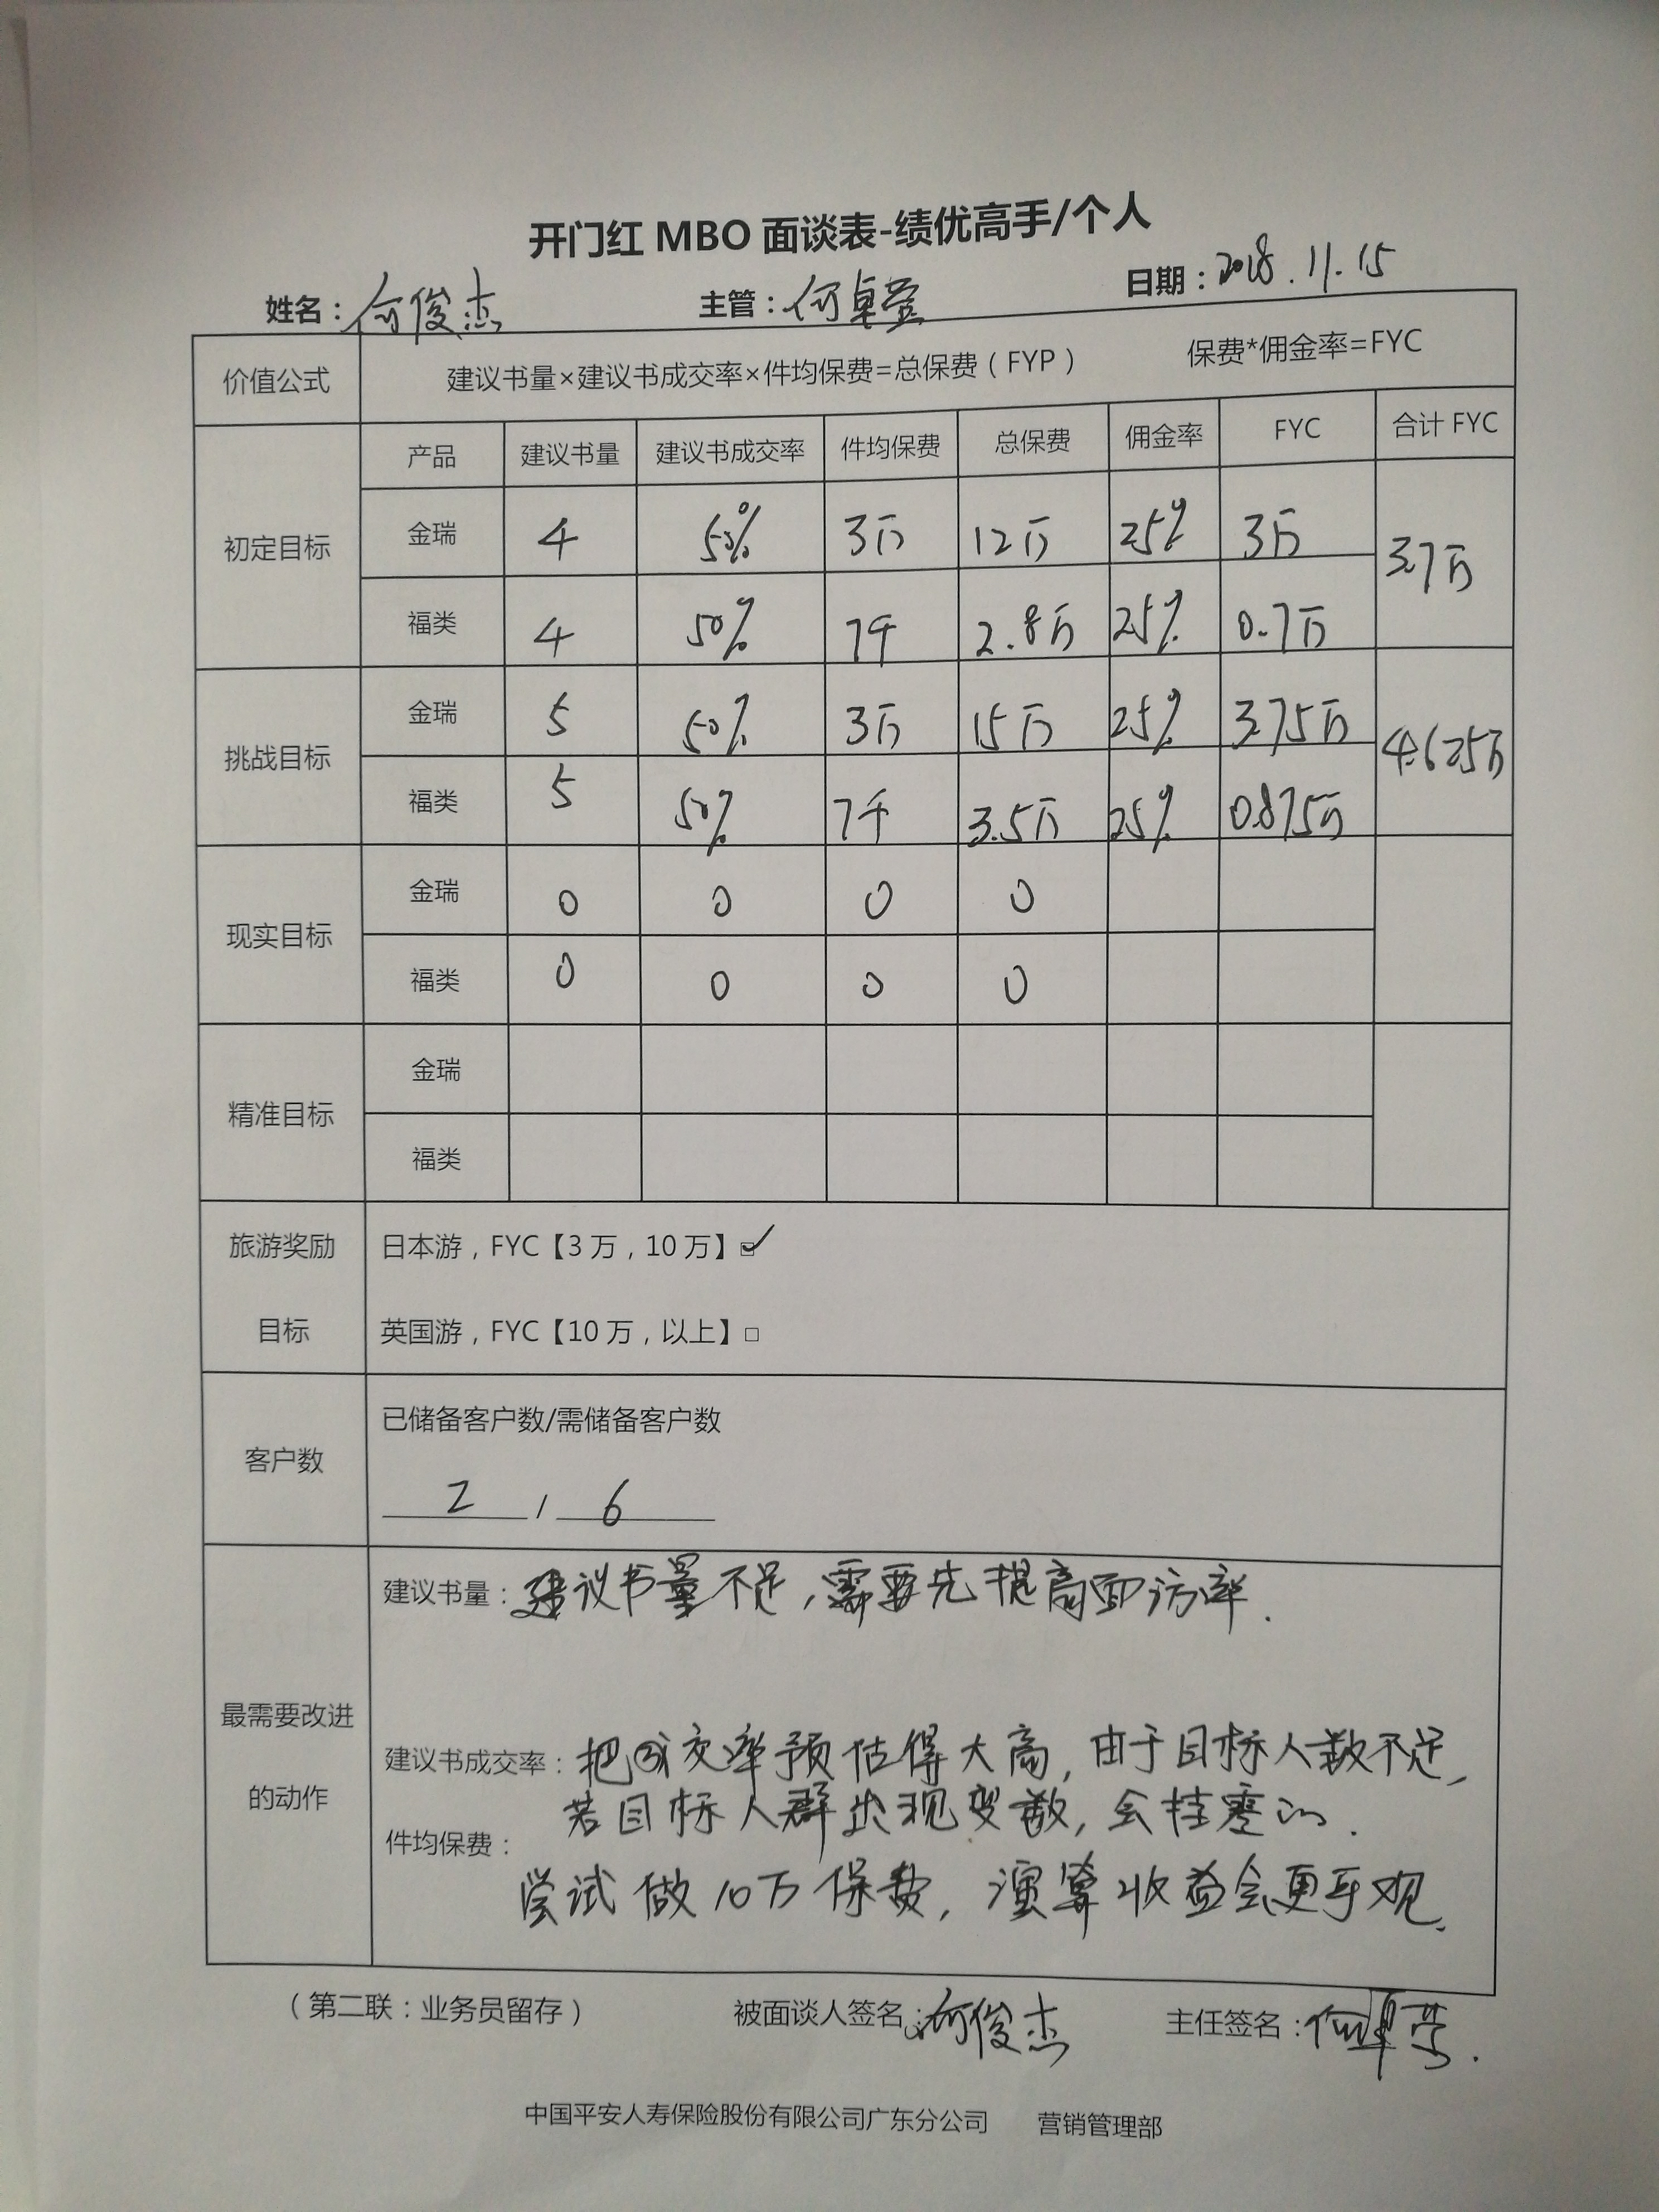 开门红 MBO 面谈表-绩优高手/个人
姓名：何俊杰 主管：何卓莹 日期：2018.11.15
价值公式 建议书量×建议书成交率×件均保费=总保费（FYP） 保费*佣金率=FYC
产品 建议书量 建议书成交率 件均保费 总保费 佣金率 FYC 合计 FYC
初定目标 金瑞 4 50% 3万 12万 25% 3万 3.7万
福类 4 50% 7千 2.8万 25% 0.7万
挑战目标 金瑞 5 50% 3万 15万 25% 3.75万 4.625万
福类 5 50% 7千 3.5万 25% 0.875万
现实目标 金瑞 0 0 0 0
福类 0 0 0 0
精准目标 金瑞
福类
旅游奖励 日本游，FYC【3 万，10 万】☑
目标 英国游，FYC【10 万，以上】□
客户数 已储备客户数/需储备客户数
2 / 6
最需要改进的动作
建议书量：建议书量不足，需要先提高面访率.
建议书成交率：把成交率预估得太高，由于目标人数不足，
若目标人群出现变数，会挂零的.
件均保费：
尝试做10万保费，演算收益会更乐观.
（第二联：业务员留存） 被面谈人签名：何俊杰 主任签名：何卓莹.
中国平安人寿保险股份有限公司广东分公司 营销管理部